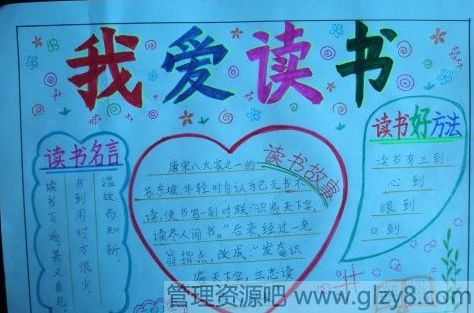 我爱读书
读书名言
温故而知新,
书到用时方恨少,
读书百遍,其义自见
读书故事
唐宋八大家之一的
苏东坡,年轻时自认为已无书不
读,便书写一副对联:"识遍天下字,
读尽人间书。"后来,经过一老
翁指点,改成:"发奋识
遍天下字,立志读
读书好方法
读书有三到:
心到
眼到
口到
管理资源吧 www.glzy8.com